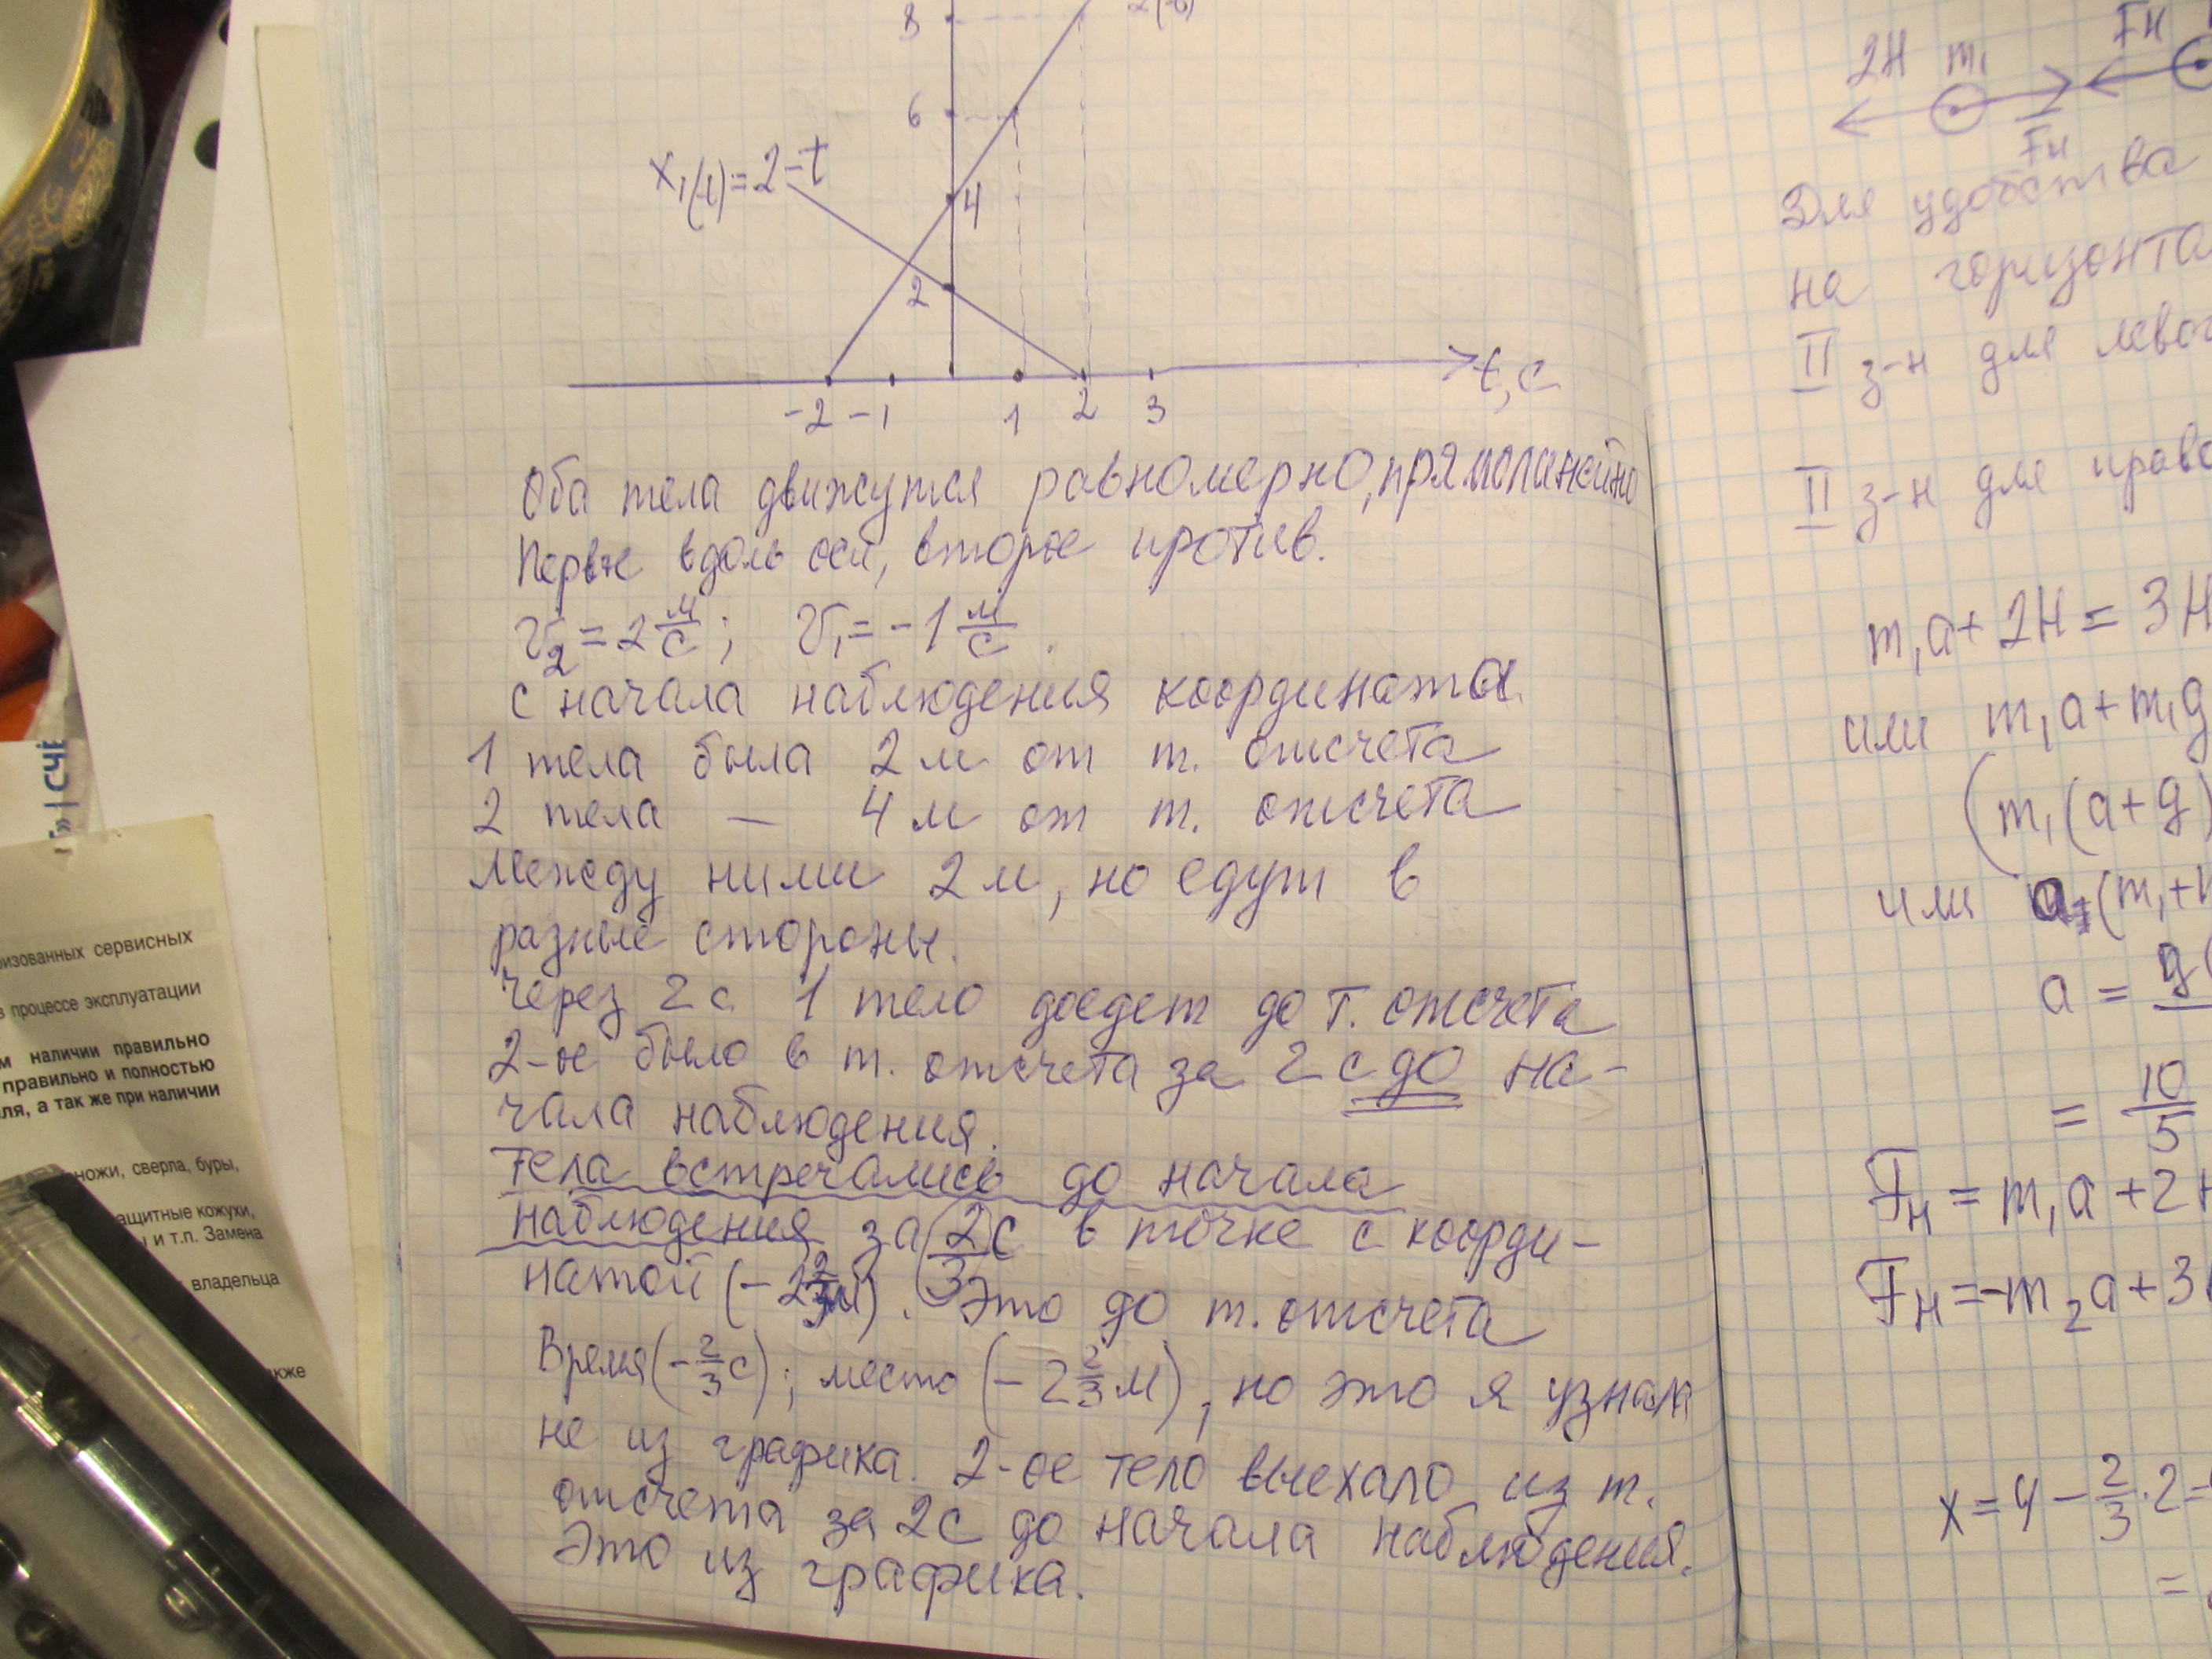 8
6
x₁(t)=2-t
4
2
t,c
-2 -1 1 2 3
Оба тела движутся равномерно, прямолинейно
Первое вдоль оси, второе против.
v₂ = 2 м/с; v₁ = -1 м/с.
с начала наблюдения координата
1 тела была 2 м от т. отсчета
2 тела — 4 м от т. отсчета
Между ними 2 м, но едут в
разные стороны.
Через 2 с 1 тело доедет до т. отсчета
2-ое было в т. отсчета за 2 с до на-
чала наблюдения.
Тела встречались до начала
наблюдения за 2/3 с в точке с коорди-
натой (-2 2/3 м). Это до т. отсчета
Время (-2/3 с); место (-2 2/3 м), но это я узнала
не из графика. 2-ое тело выехало из т.
отсчета за 2с до начала наблюдения.
Это из графика.
2Н m₁ Fн
Fн
Для удобства
на горизонта
II з-н для лево
II з-н для право
m₁a + 2Н = 3Н
или m₁a + m₁g
(m₁(a+g)
или a(m₁+
a = g(
= 10/5
Fн = m₁a + 2Н
Fн = -m₂a + 3
x = 4 - 2/3 · 2 =
=
СЧЁ
ризованных сервисных
в процессе эксплуатации
м наличии правильно
правильно и полностью
ля, а так же при наличии
ножи, сверла, буры,
ащитные кожухи,
и т.п. Замена
владельца
акже